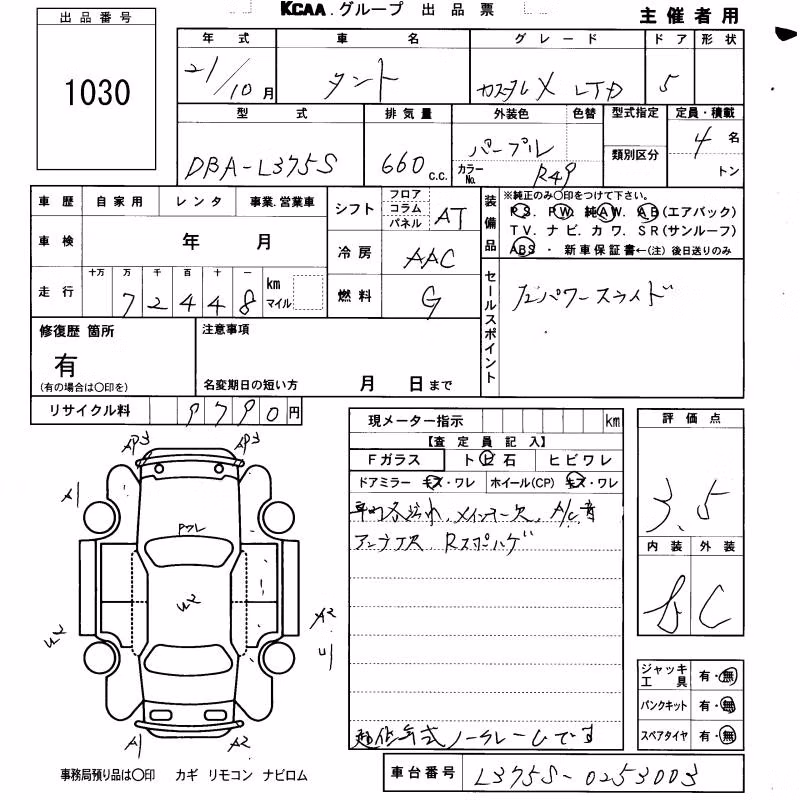 KCAA.グループ 出品票
主催者用
出品番号
1030
年式 車名 グレード ドア 形状
21/10月 タント カスタム X LTD 5
型式 排気量 外装色 色替 型式指定 定員・積載
DBA-L375S 660 C.C. パープル 類別区分 4名
カラーNo. R49 トン
車歴 自家用 レンタ 事業.営業車
車検 年 月
走行 十万 万 千 百 十 一
7 2 4 4 8 km マイル
シフト フロア コラム パネル AT
冷房 AAC
燃料 G
装備品 ※純正のみ〇印をつけて下さい。
PS. PW. 純AW. AB(エアバック)
TV. ナビ. カワ. SR(サンルーフ)
ABS・新車保証書←(注)後日送りのみ
セールスポイント
左パワースライド
修復歴 箇所
有
(有の場合は〇印を)
注意事項
名変期日の短い方 月 日まで
リサイクル料 9790円
現メーター指示 km
【査定員記入】
Fガラス ト ビ 石 ヒビワレ
ドアミラー キズ・ワレ ホイール(CP) キズ・ワレ
メインキー欠、A/C音
アンテナ欠 Rスポハゲ
年式ノークレームです
評価点
3.5
内装 外装
B C
ジャッキ工具 有・無
パンクキット 有・無
スペアタイヤ 有・無
車台番号 L375S-0253003
AP3 AP3
A1
Pワレ
U2
U2
A2
U1
A1 A2
事務局預り品は〇印 カギ リモコン ナビロム